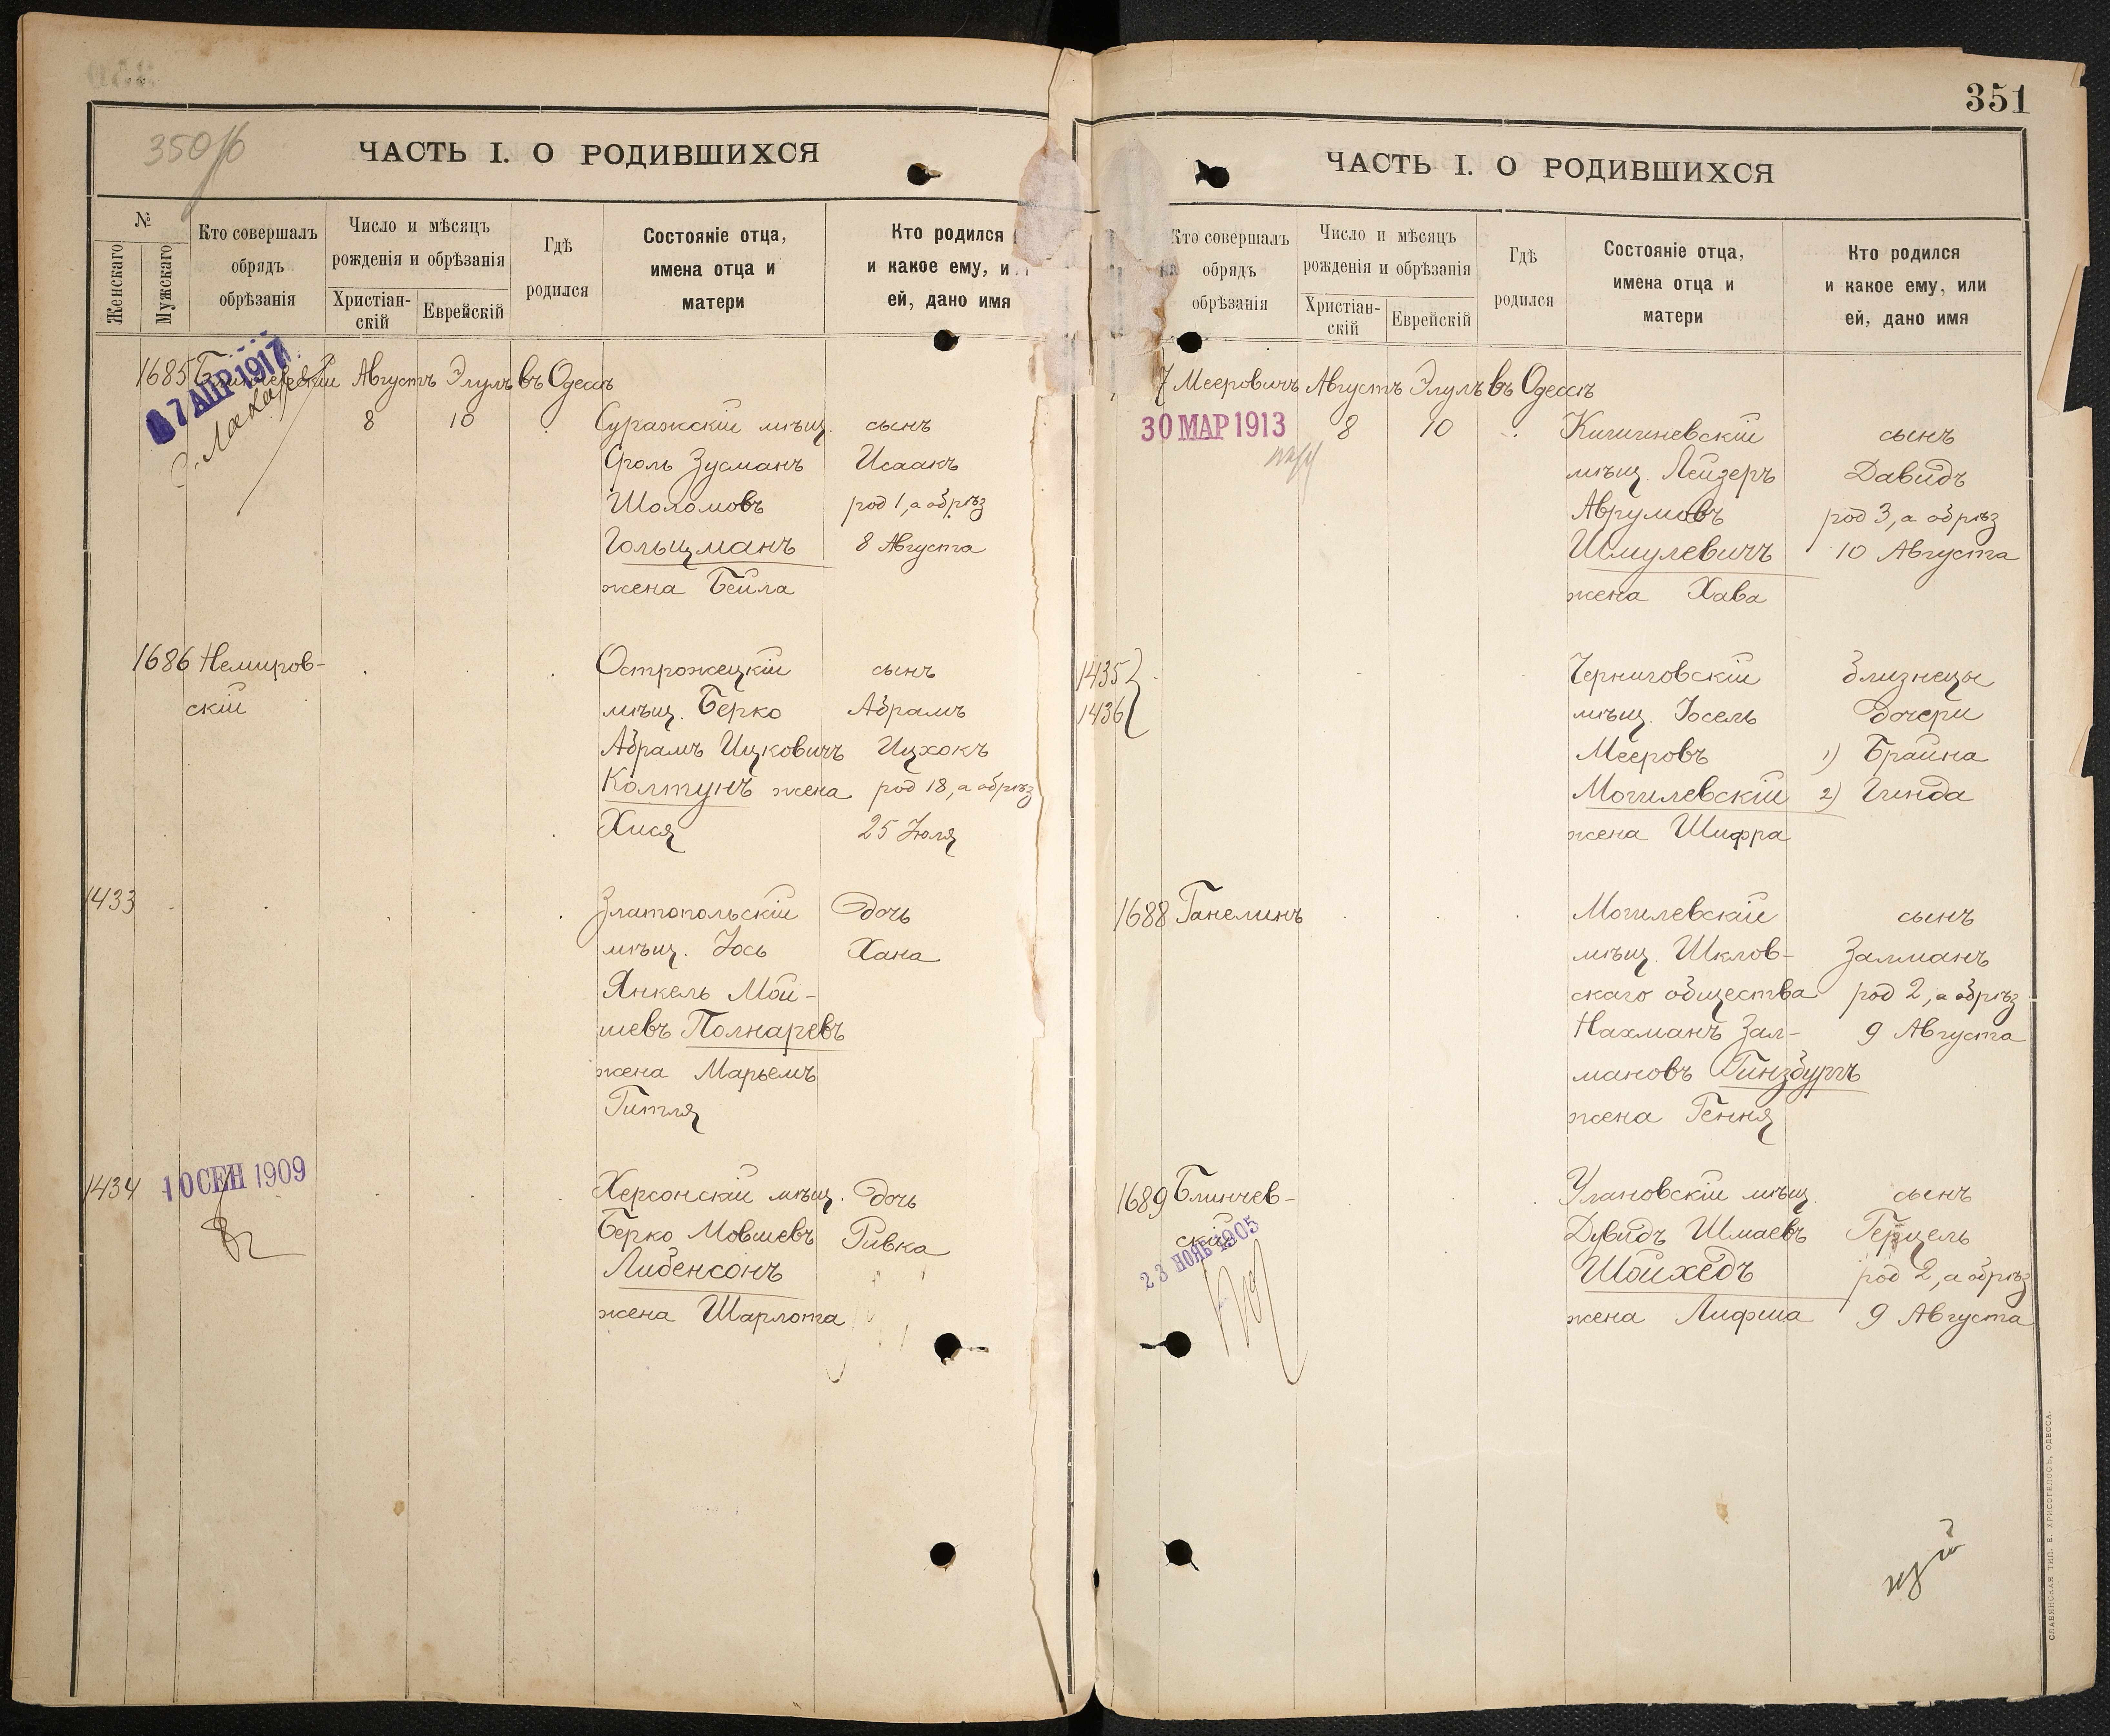 350 об
ЧАСТЬ I. О РОДИВШИХСЯ
№
Женскаго
Мужскаго
Кто совершалъ
обрядъ
обрѣзанія
Число и мѣсяцъ
рожденія и обрѣзанія
Христіан-
скій
Еврейскій
Гдѣ
родился
Состояніе отца,
имена отца и
матери
Кто родился
и какое ему, и
ей, дано имя
1685 Блинчевскій Августъ Элулъ въ Одессѣ
7 АПР 1917
8 10 Суражскій мѣщ. сынъ
Сроль Зусманъ Исаакъ
Шоломовъ род 1, а обрѣз
Гольцманъ 8 Августа
жена Бейла
1686 Немиров- Острожецкій сынъ
скій мѣщ. Берко Абрамъ
Абрамъ Ицковичъ Ицхокъ
Колтунъ жена род 18, а обрѣз
Хися 25 Іюля
1433 Златопольскій дочь
мѣщ. Іось Хана
Янкель Мой-
шевъ Полнаревъ
жена Марьемъ
Гитля
1434 10 СЕН 1909 Херсонскій мѣщ. дочь
Берко Мовшевъ Ривка
Либенсонъ
жена Шарлота
351
ЧАСТЬ I. О РОДИВШИХСЯ
Кто совершалъ
обрядъ
обрѣзанія
Число и мѣсяцъ
рожденія и обрѣзанія
Христіан-
скій
Еврейскій
Гдѣ
родился
Состояніе отца,
имена отца и
матери
Кто родился
и какое ему, или
ей, дано имя
7 Мееровичъ Августъ Элулъ въ Одессѣ
30 МАР 1913 8 10 Кишиневскій сынъ
мѣщ. Лейзеръ Давидъ
Аврумовъ род 3, а обрѣз
Шмулевичъ 10 Августа
жена Хава
1435 Черниговскій близнецы
1436 мѣщ. Іосель дочери
Мееровъ 1) Брайна
Могилевскій 2) Гинда
жена Шифра
1688 Ганелинъ Могилевскій сынъ
мѣщ. Шклов- Залманъ
скаго общества род 2, а обрѣз
Нахманъ Зал- 9 Августа
мановъ Гинзбургъ
жена Гення
1689 Блинчев- Улановскій мѣщ. сынъ
скій Дувидъ Шмаевъ Герцель
23 НОЯБ 1905 Шойхедъ род 2, а обрѣз
жена Лифша 9 Августа
СЛАВЯНСКАЯ ТИП. Е. ХРИСОГЕЛОСЪ, ОДЕССА.